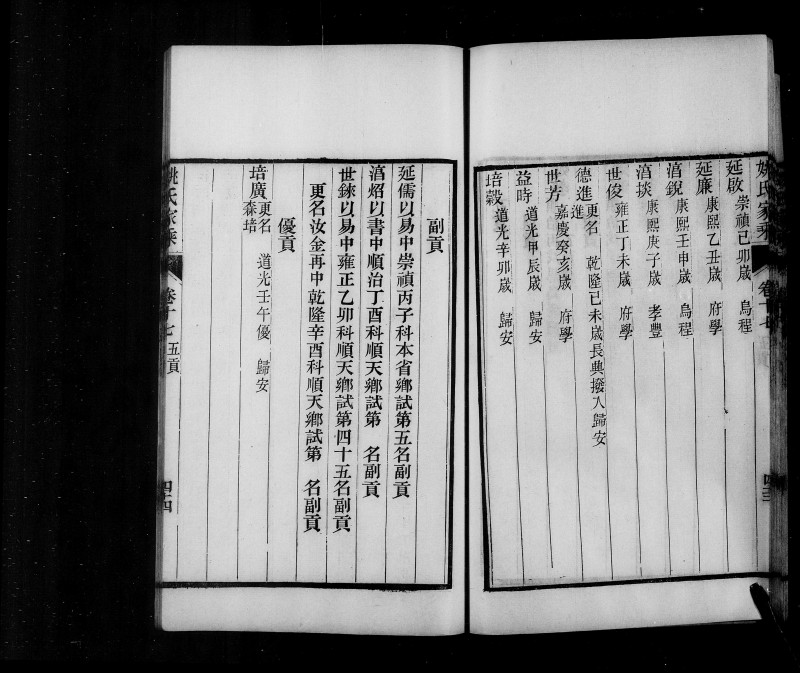 姚氏家乘
卷十七
四三
延啟 崇禎己卯歲 烏程
延廉 康熙乙丑歲 府學
淯銳 康熙壬申歲 烏程
淯掞 康熙庚子歲 孝豐
世俊 雍正丁未歲 府學
德進 更名進 乾隆己未歲長興撥入歸安
世芳 嘉慶癸亥歲 府學
益時 道光甲辰歲 歸安
培穀 道光辛卯歲 歸安
副貢
延儒以易中崇禎丙子科本省鄉試第五名副貢
淯炤以書中順治丁酉科順天鄉試第 名副貢
世錸以易中雍正乙卯科順天鄉試第四十五名副貢
更名汝金再中乾隆辛酉科順天鄉試第 名副貢
優貢
培廣 更名森培 道光壬午優 歸安
姚氏家乘
卷十七 五貢
四四